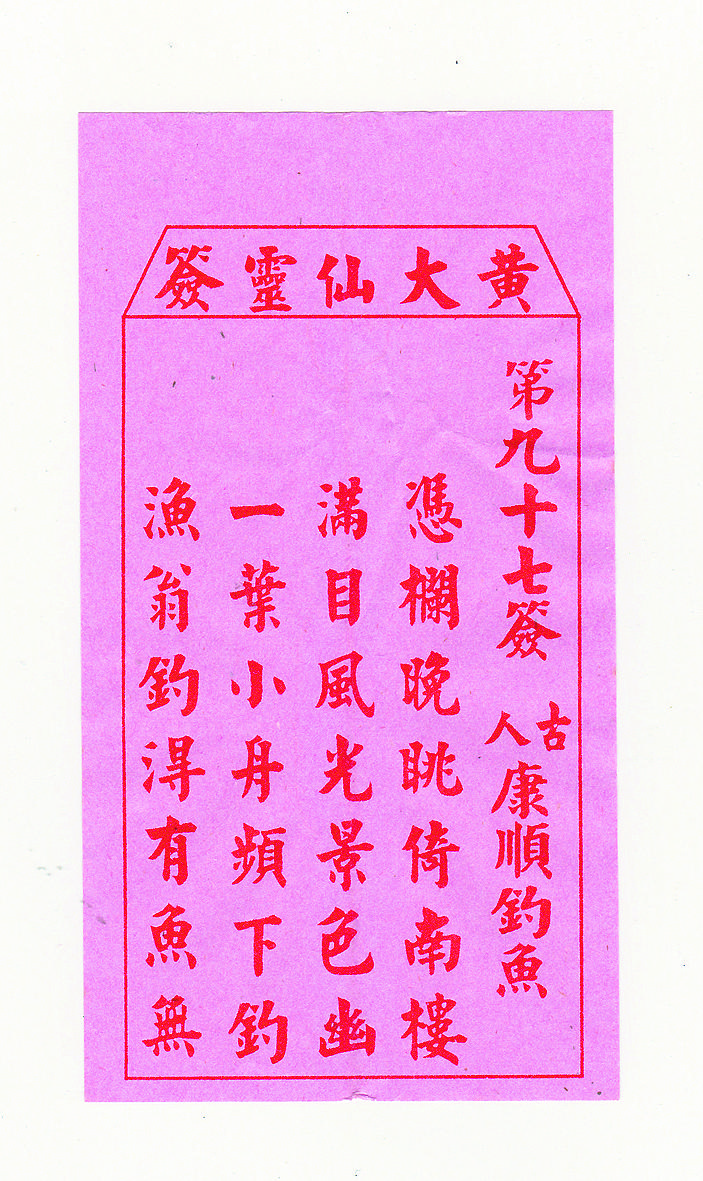 黃大仙靈簽
第九十七簽 古人 康順釣魚
憑欄晚眺倚南樓
滿目風光景色幽
一葉小舟頻下釣
漁翁釣得有魚無